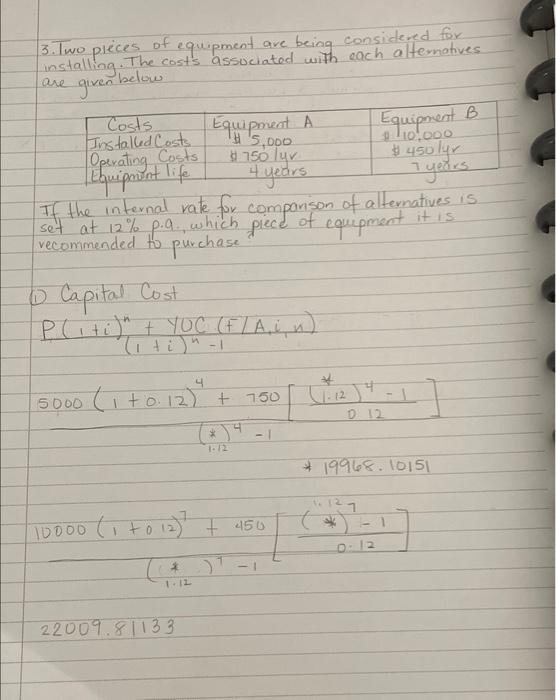 3. Two pieces of equipment are being considered for
installing. The costs associated with each alternatives
are given below
Costs Equipment A Equipment B
Installed Costs $ 5,000 $ 10,000
Operating Costs $ 750/yr $ 450/yr
Equipment life 4 years 7 years
If the internal rate for comparison of alternatives is
set at 12% p.a., which piece of equipment it is
recommended to purchase?
① Capital Cost
P(1+i)^n + YOC (F/A, i, n)
(1+i)^n - 1
5000 (1+0.12)^4 + 750 [ (1.12)^4 - 1
0.12 ]
(*)^4 - 1
1.12
* 19968.10151
10000 (1+0.12)^7 + 450 [ 1.12 (*)^7 - 1
0.12 ]
(*)^7 - 1
1.12
22009.81133